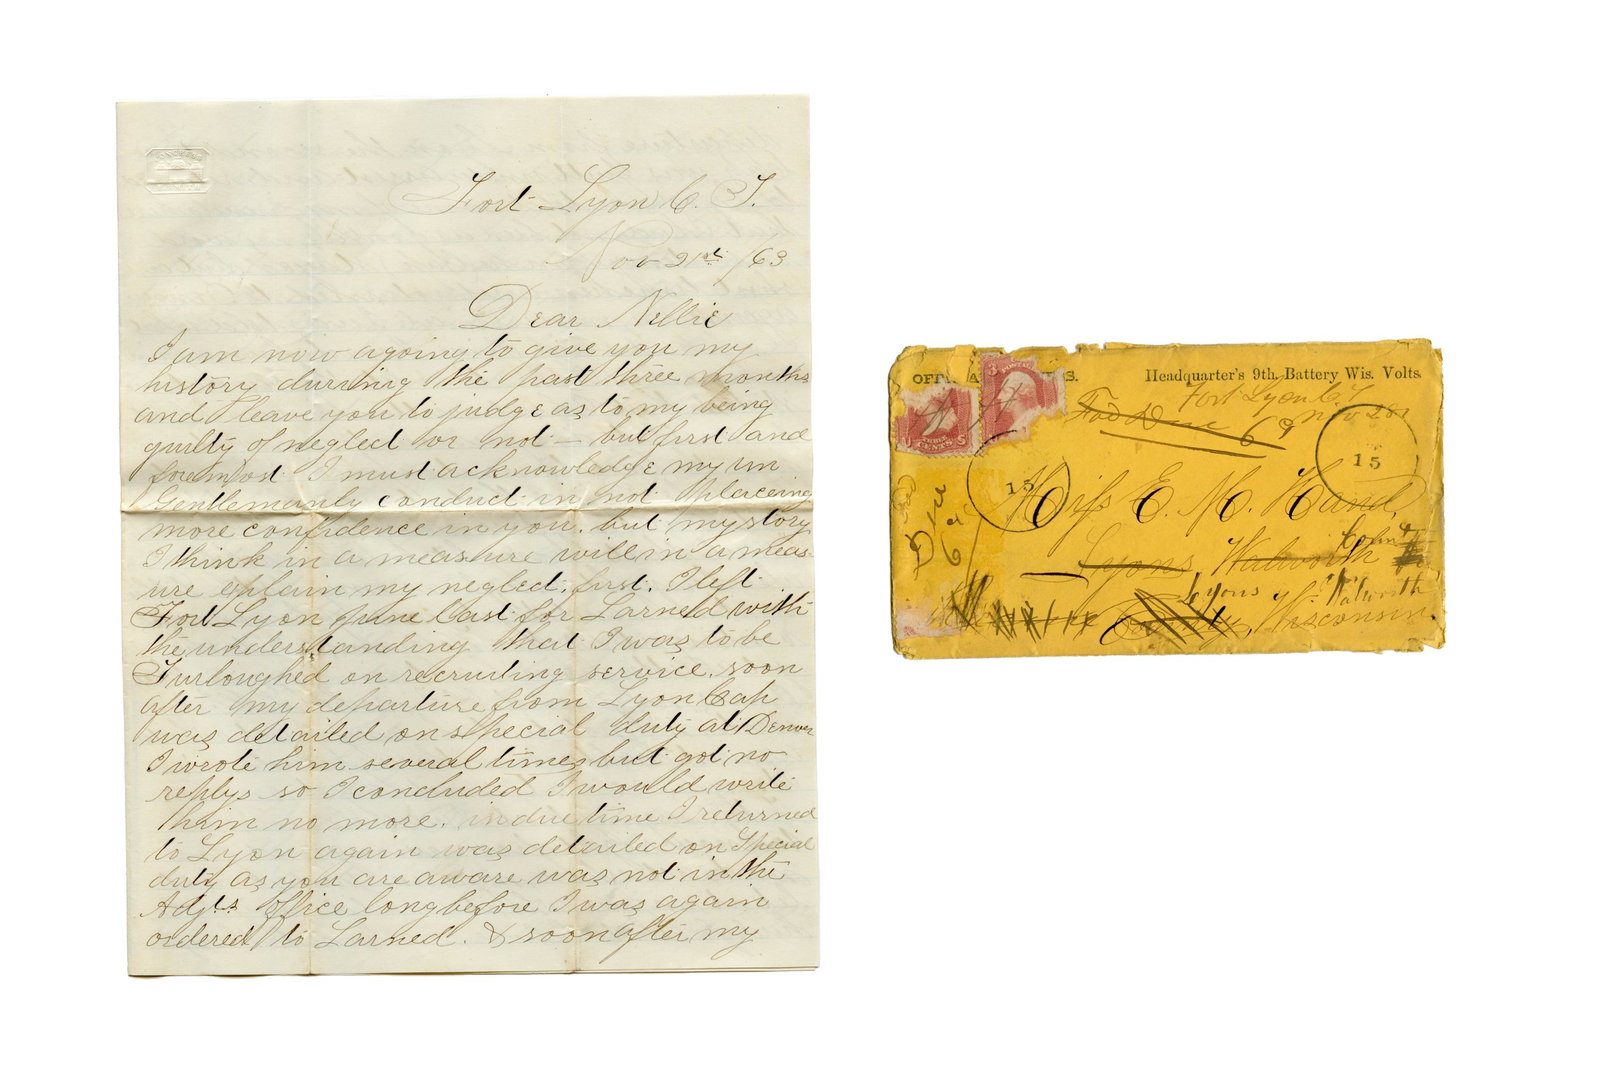 Fort Lyon C. T.
Nov 21st /63
Dear Nellie
I am now agoing to give you my
history durring the past three months
and I leave you to judge as to my being
guilty of neglect or not – but first and
foremost I must acknowledge my un
Gentlemanly conduct in not placeing
more confidence in you. but my story
I think in a measure will in a meas-
ure explain my neglect. first. I left
Fort Lyon June last for Larned with
the understanding that I was to be
Furloughed on recruiting service. soon
after my departure from Lyon Cap
was detailed on special duty at Denver
I wrote him several times but got no
replys so I concluded I would write
him no more. in due time I returned
to Lyon again was detailed on Special
duty as you are aware was not in the
Adjts office long before I was again
ordered to Larned. & soon after my
Headquarter's 9th. Battery Wis. Volts.
3 POSTAGE
U THREE CENTS S
Fort Lyon C. T.
Nov 28
Due 6
15
15
Due 6
Miss E. M. Hand.
Lyons Walworth County
Lyons Walworth
Wisconsin.